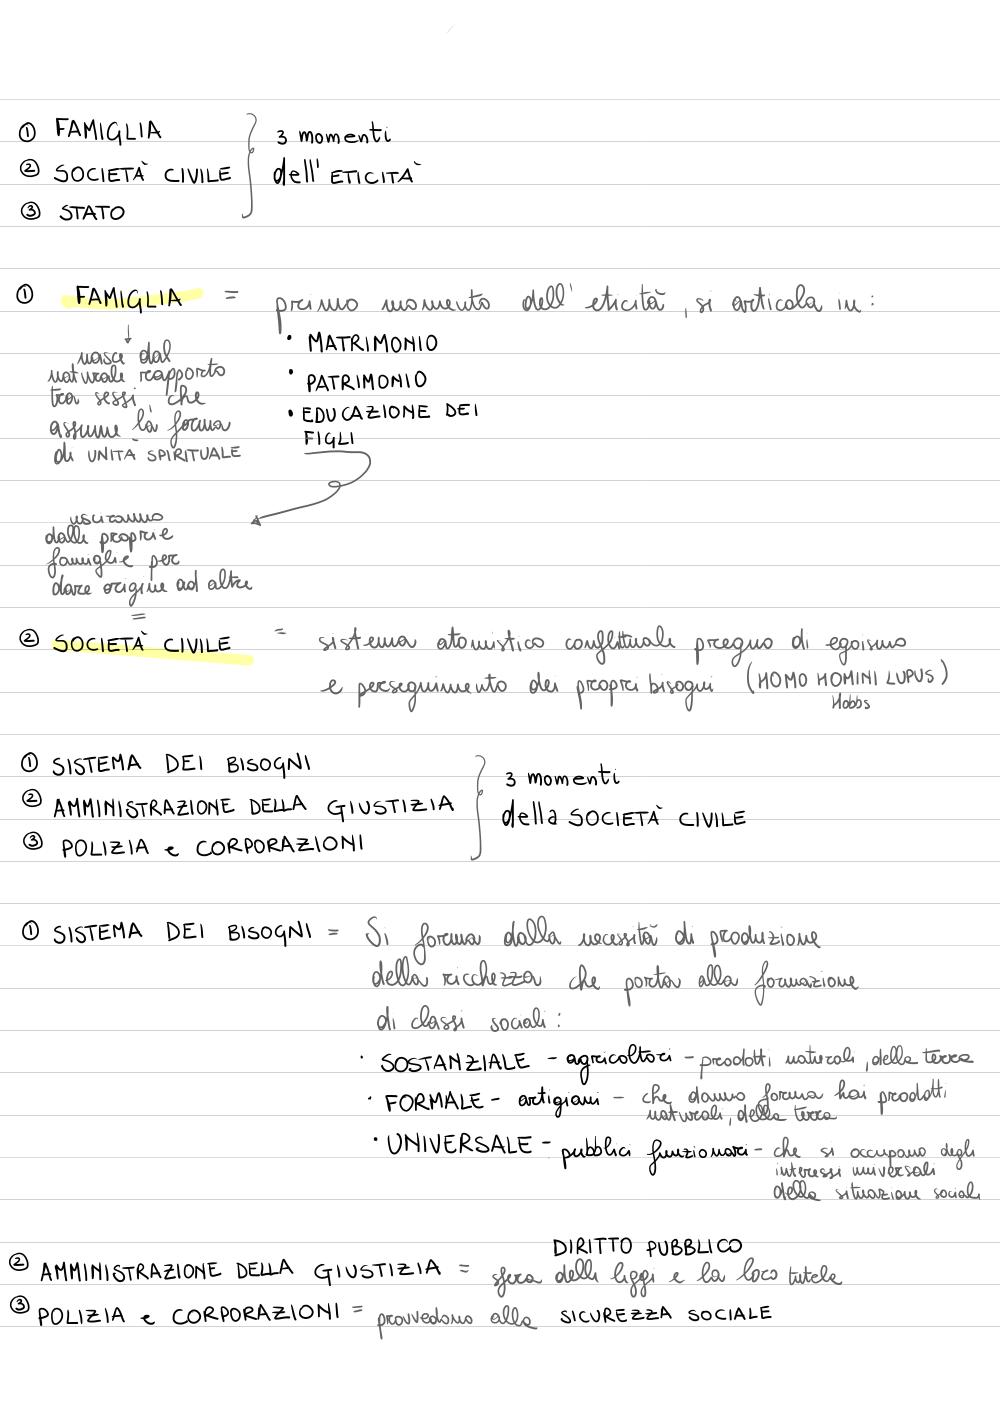 ① FAMIGLIA
② SOCIETÀ CIVILE
③ STATO
3 momenti
dell' ETICITÀ
① FAMIGLIA = primo momento dell' eticità, si articola in:
• MATRIMONIO
• PATRIMONIO
• EDUCAZIONE DEI
FIGLI
↓
nasce dal
naturale rapporto
tra sessi, che
assume la forma
di UNITÀ SPIRITUALE
usciranno
dalle proprie
famiglie per
dare origine ad altre
=
② SOCIETÀ CIVILE = sistema atomistico conflittuale pregno di egoismo
e perseguimento dei propri bisogni (HOMO HOMINI LUPUS)
Hobbs
① SISTEMA DEI BISOGNI
② AMMINISTRAZIONE DELLA GIUSTIZIA
③ POLIZIA e CORPORAZIONI
3 momenti
della SOCIETÀ CIVILE
① SISTEMA DEI BISOGNI = Si forma dalla necessità di produzione
della ricchezza che porta alla formazione
di classi sociali:
• SOSTANZIALE - agricoltori - prodotti naturali, della terra
• FORMALE - artigiani - che danno forma hai prodotti
naturali, della terra
• UNIVERSALE - pubblici funzionari - che si occupano degli
interessi universali
della situazione sociale
DIRITTO PUBBLICO
② AMMINISTRAZIONE DELLA GIUSTIZIA = sfera delle leggi e la loro tutela
③ POLIZIA e CORPORAZIONI = provvedono alla SICUREZZA SOCIALE